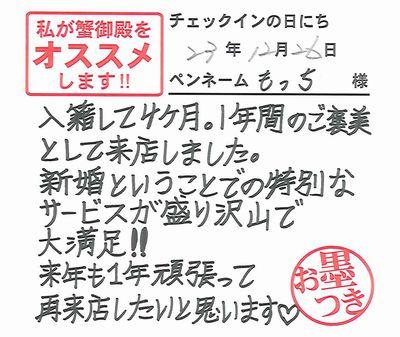 私が蟹御殿を
オススメ
します!!
チェックインの日にち
23年12月26日
ペンネーム もっち 様
入籍して4ケ月。1年間のご褒美
として来店しました。
新婚ということでの特別な
サービスが盛り沢山で
大満足!!
来年も1年頑張って
再来店したいと思います♡
お墨つき